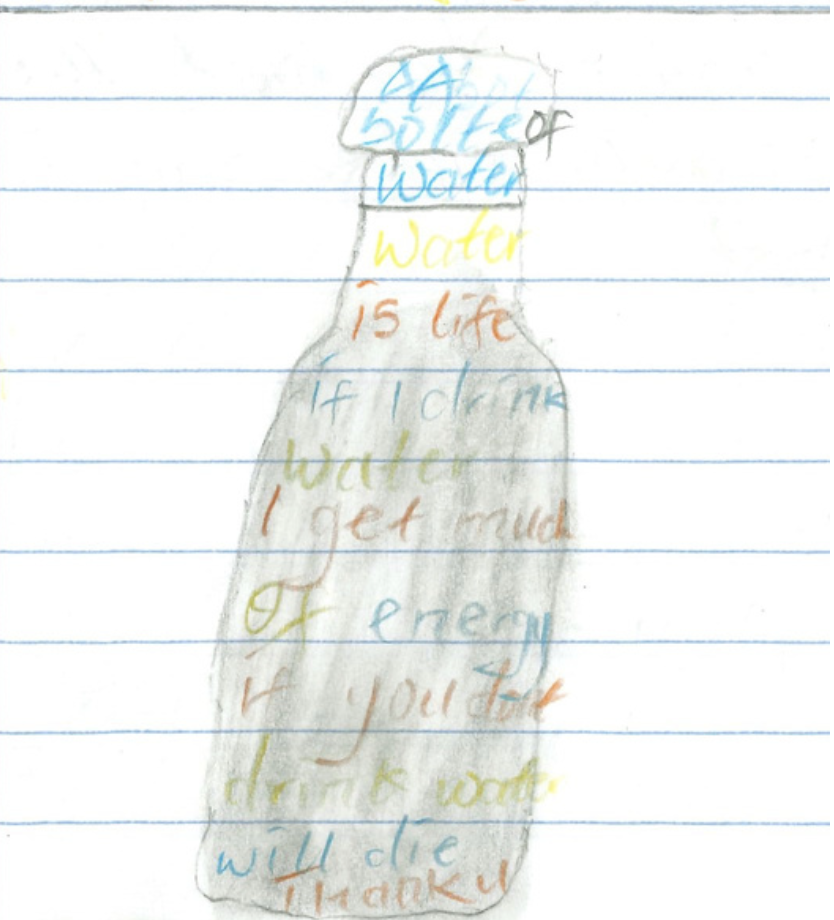 bottle of
Water
Water
is life
if I drink
water
I get much
Of energy
if you dont
drink water
will die
Thank u